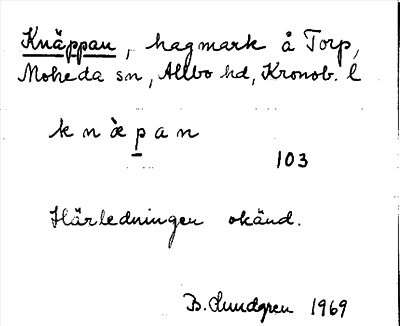 Knäppan, hagmark å Torp,
Moheda sn, Allbo hd, Kronob. l
k n æ̀ p a n
103
Härledningen okänd.
B. Lundgren 1969